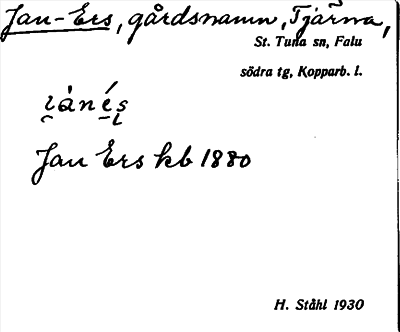 Jan-Ers, gårdsnamn, Tjärna,
St. Tuna sn, Falu
södra tg, Kopparb. l.
Jan Ers kb 1880
H. Ståhl 1930